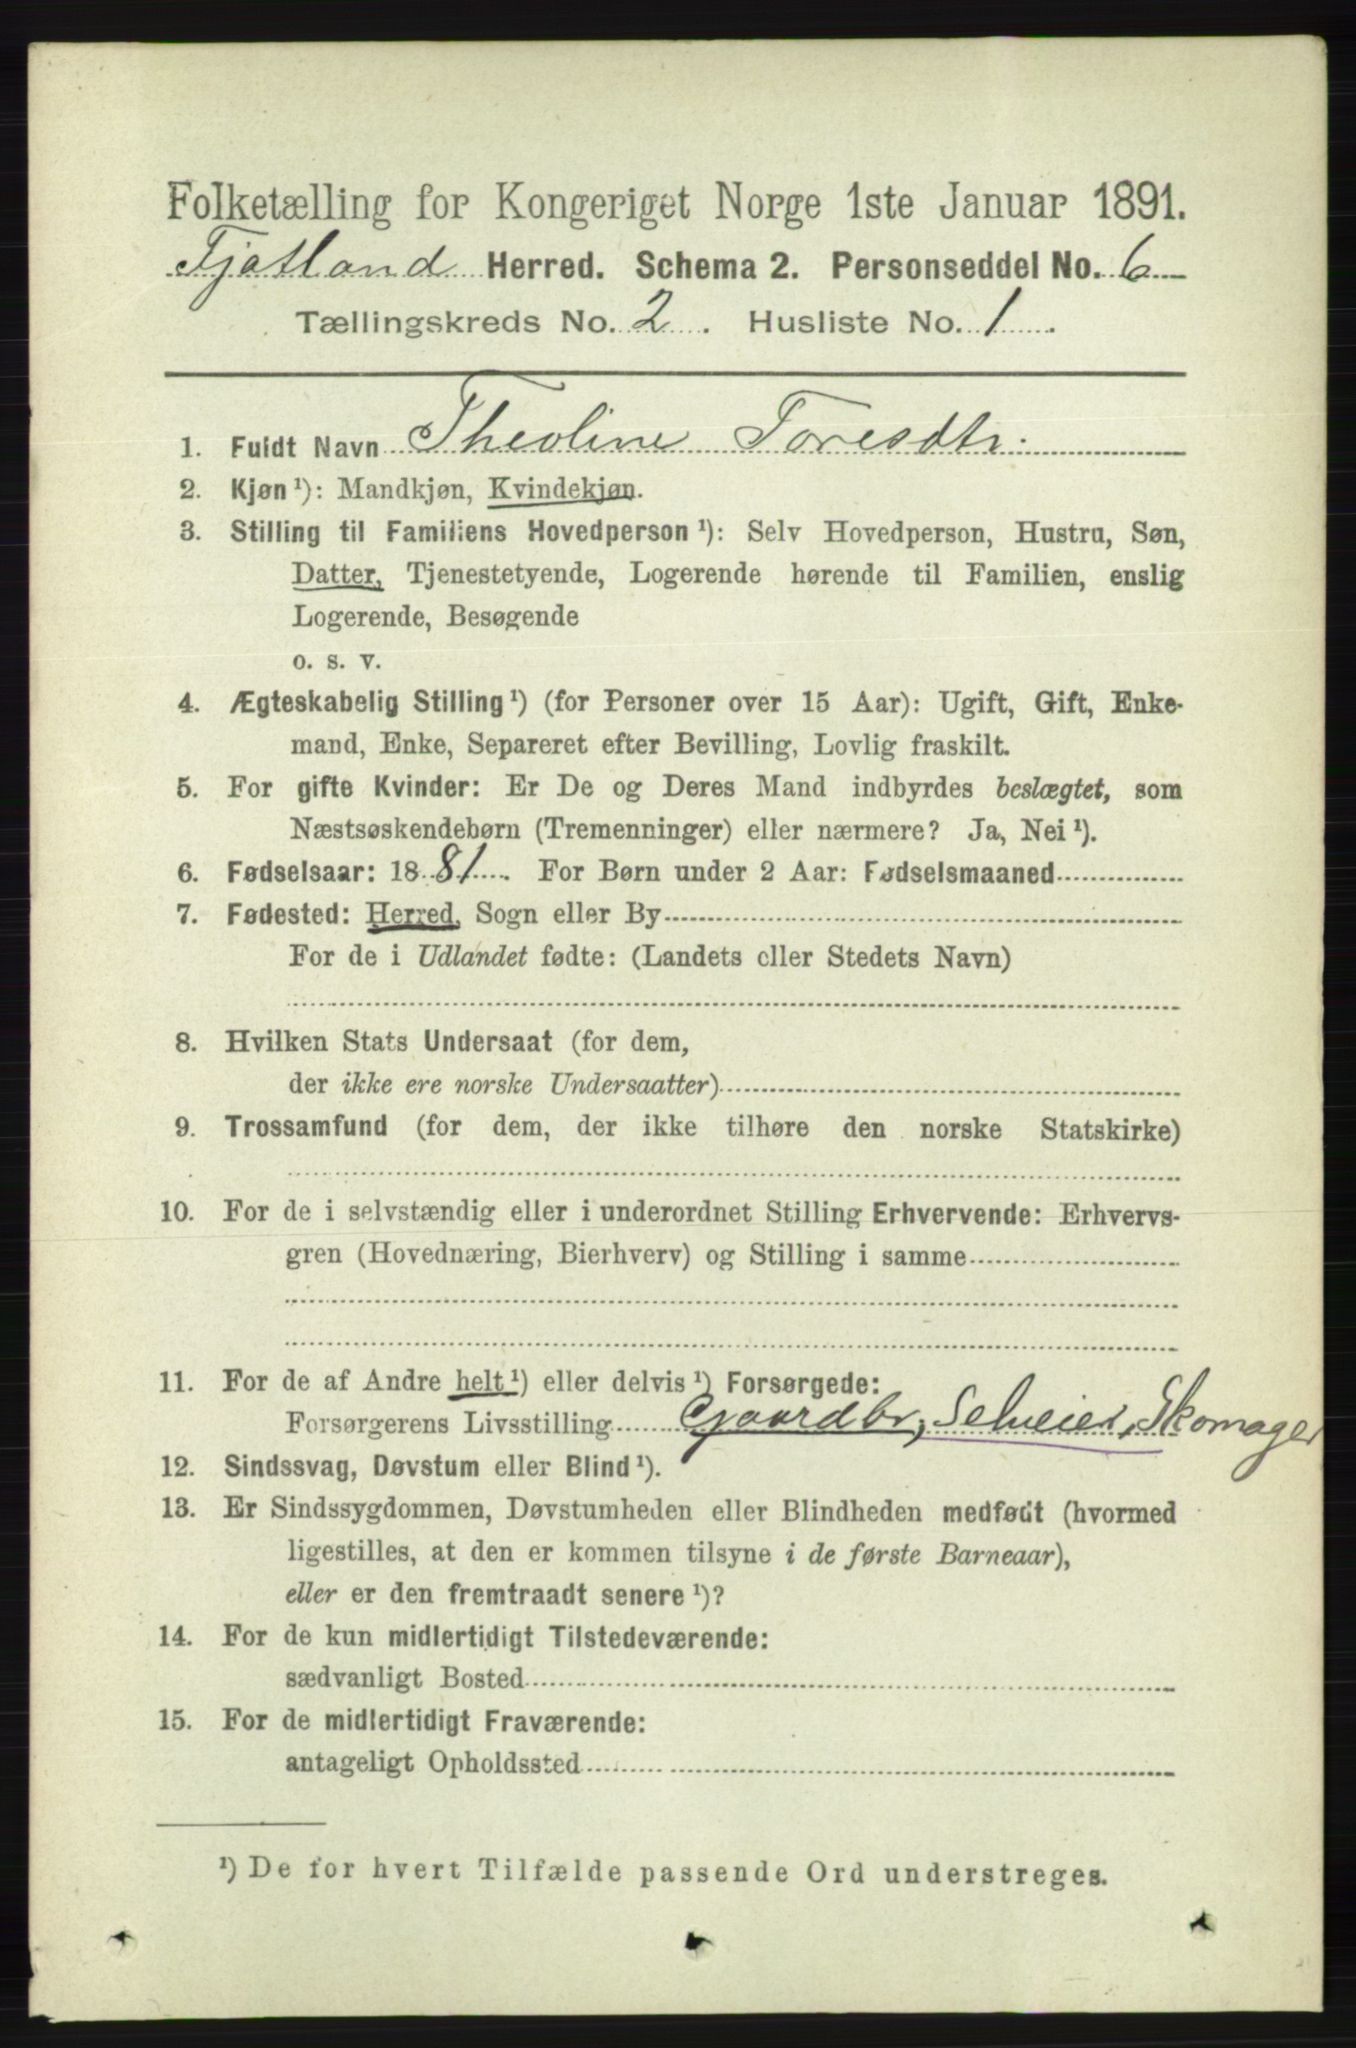 Folketælling for Kongeriget Norge 1ste Januar 1891.
Fjotland Herred. Schema 2. Personseddel No. 6
Tællingskreds No. 2. Husliste No. 1.
1. Fuldt Navn Theoline Toresdtr.
2. Kjøn ¹): Mandkjøn, Kvindekjøn.
3. Stilling til Familiens Hovedperson ¹): Selv Hovedperson, Hustru, Søn,
Datter, Tjenestetyende, Logerende hørende til Familien, enslig
Logerende, Besøgende
o. s. v.
4. Ægteskabelig Stilling ¹) (for Personer over 15 Aar): Ugift, Gift, Enke-
mand, Enke, Separeret efter Bevilling, Lovlig fraskilt.
5. For gifte Kvinder: Er De og Deres Mand indbyrdes beslægtet, som
Næstsøskendebørn (Tremenninger) eller nærmere? Ja, Nei ¹).
6. Fødselsaar: 1881. For Børn under 2 Aar: Fødselsmaaned
7. Fødested: Herred, Sogn eller By
For de i Udlandet fødte: (Landets eller Stedets Navn)
8. Hvilken Stats Undersaat (for dem,
der ikke ere norske Undersaatter)
9. Trossamfund (for dem, der ikke tilhøre den norske Statskirke)
10. For de i selvstændig eller i underordnet Stilling Erhvervende: Erhvervs-
gren (Hovednæring, Bierhverv) og Stilling i samme
11. For de af Andre helt ¹) eller delvis ¹) Forsørgede:
Forsørgerens Livsstilling Gaardbr, Selveier, Skomager
12. Sindssvag, Døvstum eller Blind ¹).
13. Er Sindssygdommen, Døvstumheden eller Blindheden medfødt (hvormed
ligestilles, at den er kommen tilsyne i de første Barneaar),
eller er den fremtraadt senere ¹)?
14. For de kun midlertidigt Tilstedeværende:
sædvanligt Bosted
15. For de midlertidigt Fraværende:
antageligt Opholdssted
¹) De for hvert Tilfælde passende Ord understreges.